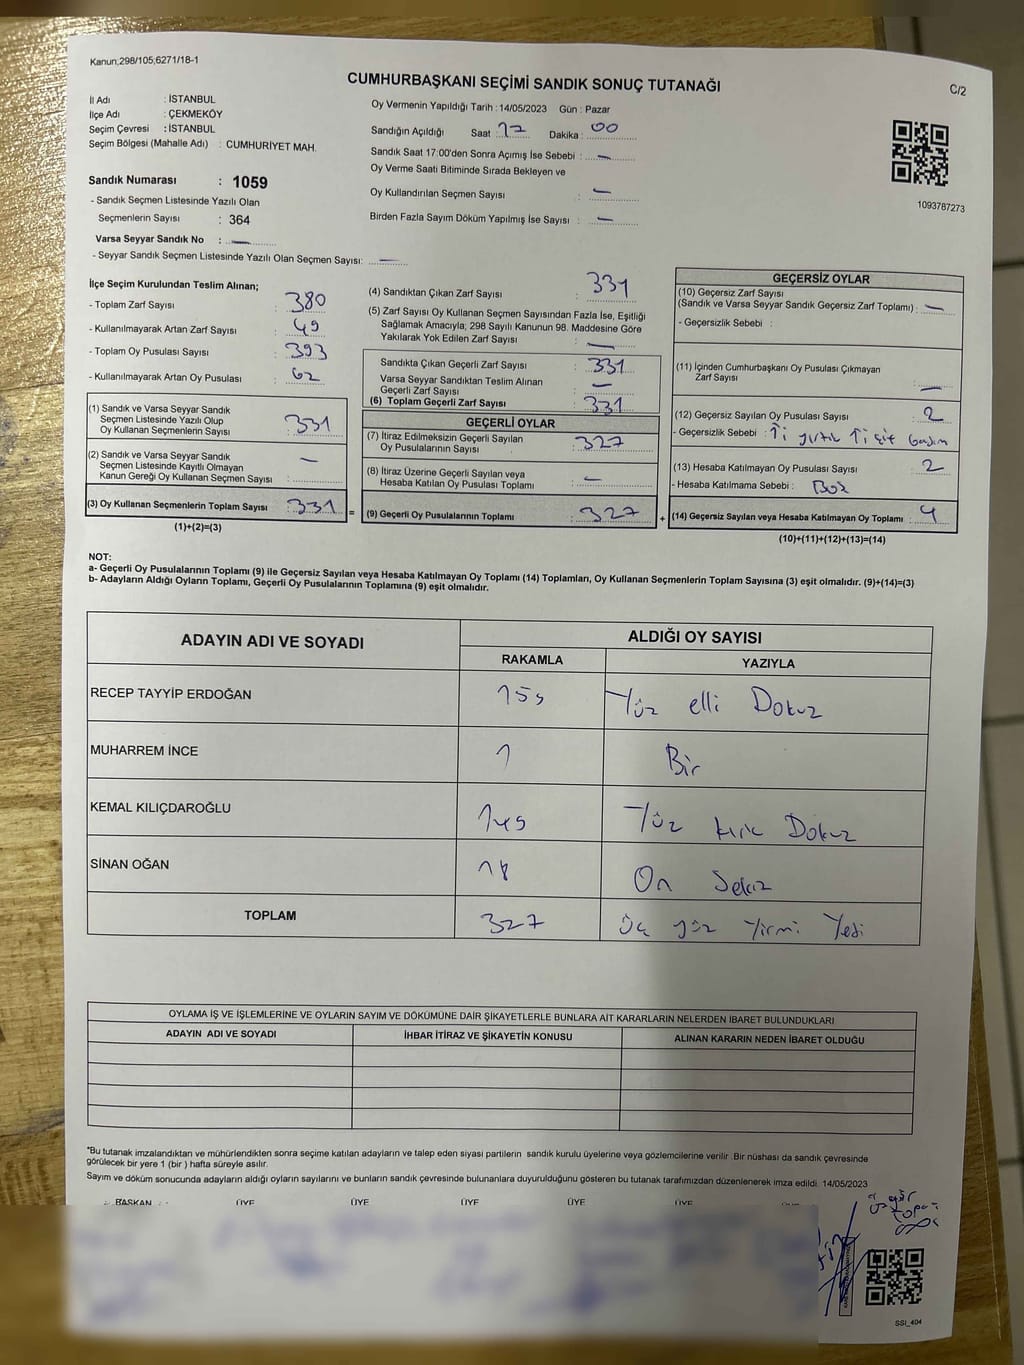 Kanun;298/105;6271/18-1
CUMHURBAŞKANI SEÇİMİ SANDIK SONUÇ TUTANAĞI
C/2
İl Adı : İSTANBUL
İlçe Adı : ÇEKMEKÖY
Seçim Çevresi : İSTANBUL
Seçim Bölgesi (Mahalle Adı) : CUMHURİYET MAH.
Sandık Numarası : 1059
- Sandık Seçmen Listesinde Yazılı Olan
Seçmenlerin Sayısı : 364
Varsa Seyyar Sandık No : —
- Seyyar Sandık Seçmen Listesinde Yazılı Olan Seçmen Sayısı: —
Oy Vermenin Yapıldığı Tarih : 14/05/2023 Gün : Pazar
Sandığın Açıldığı Saat : 17 Dakika : 00
Sandık Saat 17:00'den Sonra Açımış İse Sebebi : —
Oy Verme Saati Bitiminde Sırada Bekleyen ve
Oy Kullandırılan Seçmen Sayısı : —
Birden Fazla Sayım Döküm Yapılmış İse Sayısı : —
1093787273
İlçe Seçim Kurulundan Teslim Alınan;
- Toplam Zarf Sayısı : 380
- Kullanılmayarak Artan Zarf Sayısı : 49
- Toplam Oy Pusulası Sayısı : 393
- Kullanılmayarak Artan Oy Pusulası : 62
(1) Sandık ve Varsa Seyyar Sandık
Seçmen Listesinde Yazılı Olup
Oy Kullanan Seçmenlerin Sayısı : 331
(2) Sandık ve Varsa Seyyar Sandık
Seçmen Listesinde Kayıtlı Olmayan
Kanun Gereği Oy Kullanan Seçmen Sayısı : —
(3) Oy Kullanan Seçmenlerin Toplam Sayısı : 331 =
(1)+(2)=(3)
(4) Sandıktan Çıkan Zarf Sayısı : 331
(5) Zarf Sayısı Oy Kullanan Seçmen Sayısından Fazla İse, Eşitliği
Sağlamak Amacıyla; 298 Sayılı Kanunun 98. Maddesine Göre
Yakılarak Yok Edilen Zarf Sayısı : —
Sandıkta Çıkan Geçerli Zarf Sayısı : 331
Varsa Seyyar Sandıktan Teslim Alınan
Geçerli Zarf Sayısı : —
(6) Toplam Geçerli Zarf Sayısı : 331
GEÇERLİ OYLAR
(7) İtiraz Edilmeksizin Geçerli Sayılan
Oy Pusulalarının Sayısı : 327
(8) İtiraz Üzerine Geçerli Sayılan veya
Hesaba Katılan Oy Pusulası Toplamı : —
(9) Geçerli Oy Pusulalarının Toplamı : 327 +
GEÇERSİZ OYLAR
(10) Geçersiz Zarf Sayısı
(Sandık ve Varsa Seyyar Sandık Geçersiz Zarf Toplamı) : —
- Geçersizlik Sebebi :
(11) İçinden Cumhurbaşkanı Oy Pusulası Çıkmayan
Zarf Sayısı : —
(12) Geçersiz Sayılan Oy Pusulası Sayısı : 2
- Geçersizlik Sebebi :
(13) Hesaba Katılmayan Oy Pusulası Sayısı : 2
- Hesaba Katılmama Sebebi : Boş
(14) Geçersiz Sayılan veya Hesaba Katılmayan Oy Toplamı : 4
(10)+(11)+(12)+(13)=(14)
NOT:
a- Geçerli Oy Pusulalarının Toplamı (9) ile Geçersiz Sayılan veya Hesaba Katılmayan Oy Toplamı (14) Toplamları, Oy Kullanan Seçmenlerin Toplam Sayısına (3) eşit olmalıdır. (9)+(14)=(3)
b- Adayların Aldığı Oyların Toplamı, Geçerli Oy Pusulalarının Toplamına (9) eşit olmalıdır.
ADAYIN ADI VE SOYADI ALDIĞI OY SAYISI
RAKAMLA YAZIYLA
RECEP TAYYİP ERDOĞAN 159 Yüz elli Dokuz
MUHARREM İNCE 1 Bir
KEMAL KILIÇDAROĞLU 149 Yüz kırk Dokuz
SİNAN OĞAN 18 On Sekiz
TOPLAM 327 Üç yüz Yirmi Yedi
OYLAMA İŞ VE İŞLEMLERİNE VE OYLARIN SAYIM VE DÖKÜMÜNE DAİR ŞİKAYETLERLE BUNLARA AİT KARARLARIN NELERDEN İBARET BULUNDUKLARI
ADAYIN ADI VE SOYADI İHBAR İTİRAZ VE ŞİKAYETİN KONUSU ALINAN KARARIN NEDEN İBARET OLDUĞU
*Bu tutanak imzalandıktan ve mühürlendikten sonra seçime katılan adayların ve talep eden siyasi partilerin sandık kurulu üyelerine veya gözlemcilerine verilir. Bir nüshası da sandık çevresinde
görülecek bir yere 1 (bir) hafta süreyle asılır.
Sayım ve döküm sonucunda adayların aldığı oyların sayılarını ve bunların sandık çevresinde bulunanlara duyurulduğunu gösteren bu tutanak tarafımızdan düzenlenerek imza edildi. 14/05/2023
BAŞKAN ÜYE ÜYE ÜYE ÜYE ÜYE
SSI_404